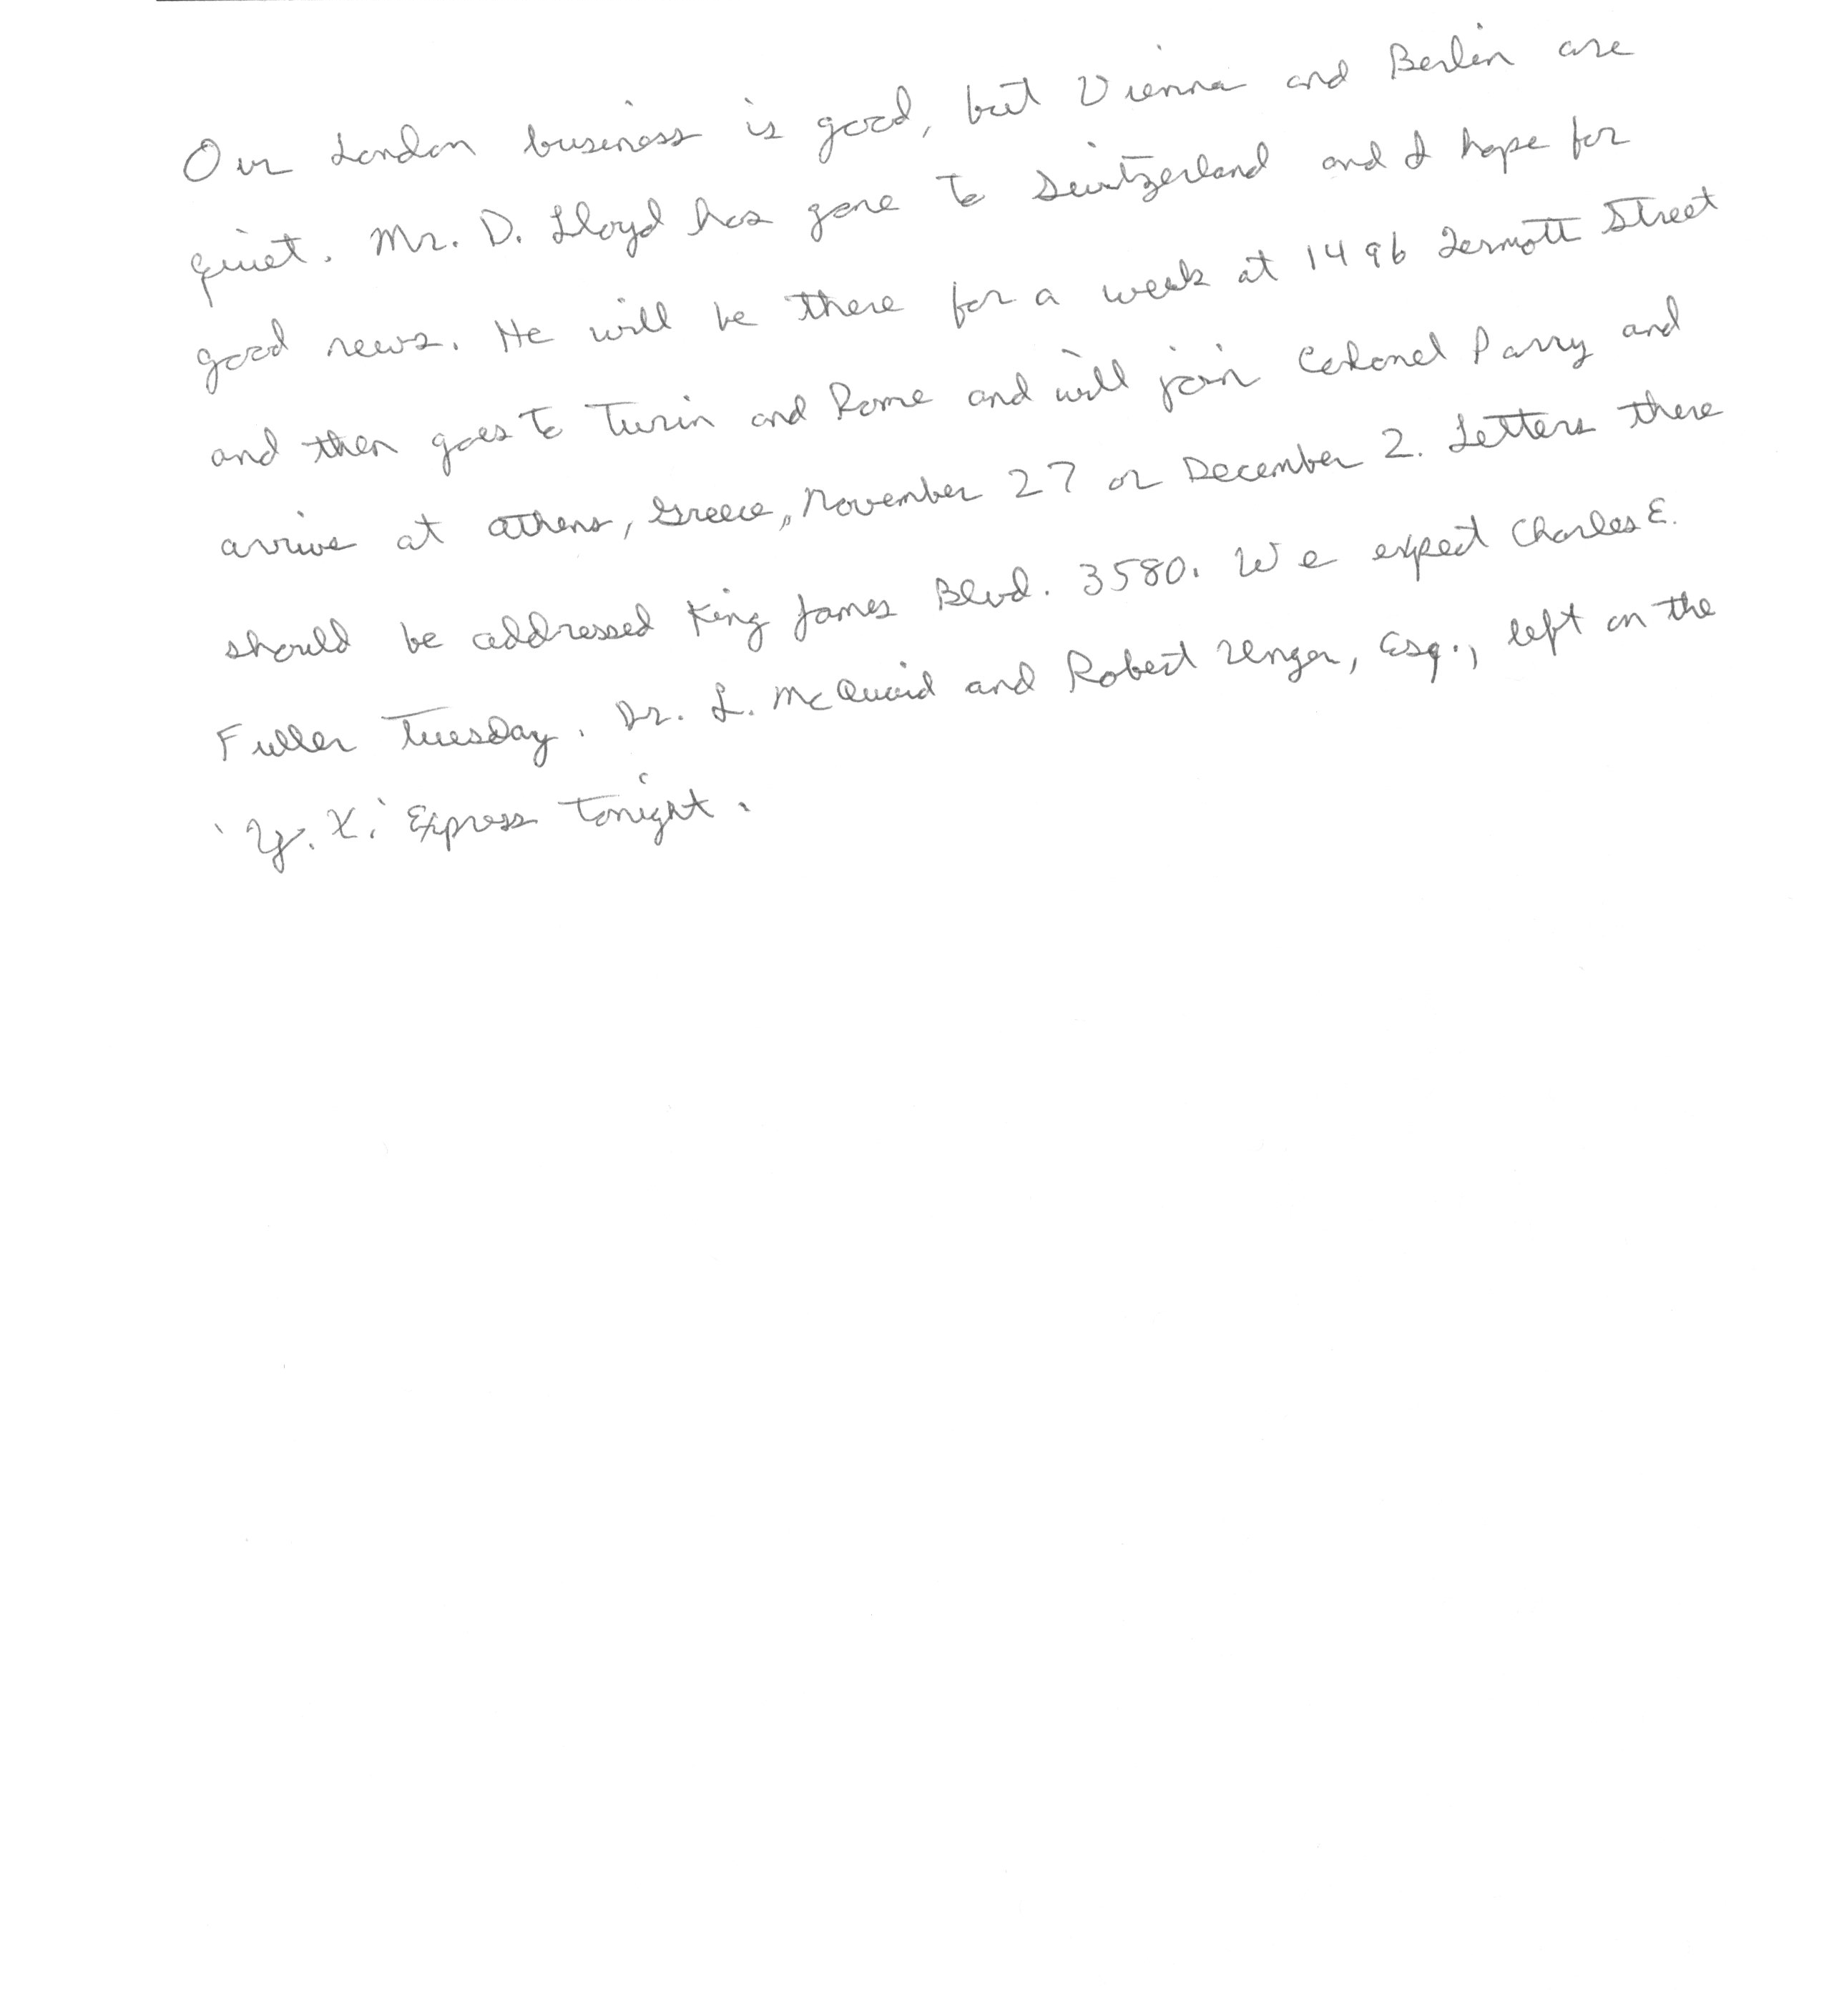 Our London business is good, but Vienna and Berlin are
quiet. Mr. D. Lloyd has gone to Switzerland and I hope for
good news. He will be there for a week at 1496 Zermott Street
and then goes to Turin and Rome and will join Colonel Parry and
arrive at Athens, Greece, November 27 or December 2. Letters there
should be addressed King James Blvd. 3580. We expect Charles E.
Fuller Tuesday. Dr. L. McQuaid and Robert Unger, Esq., left on the
'Y. X.' Express tonight.